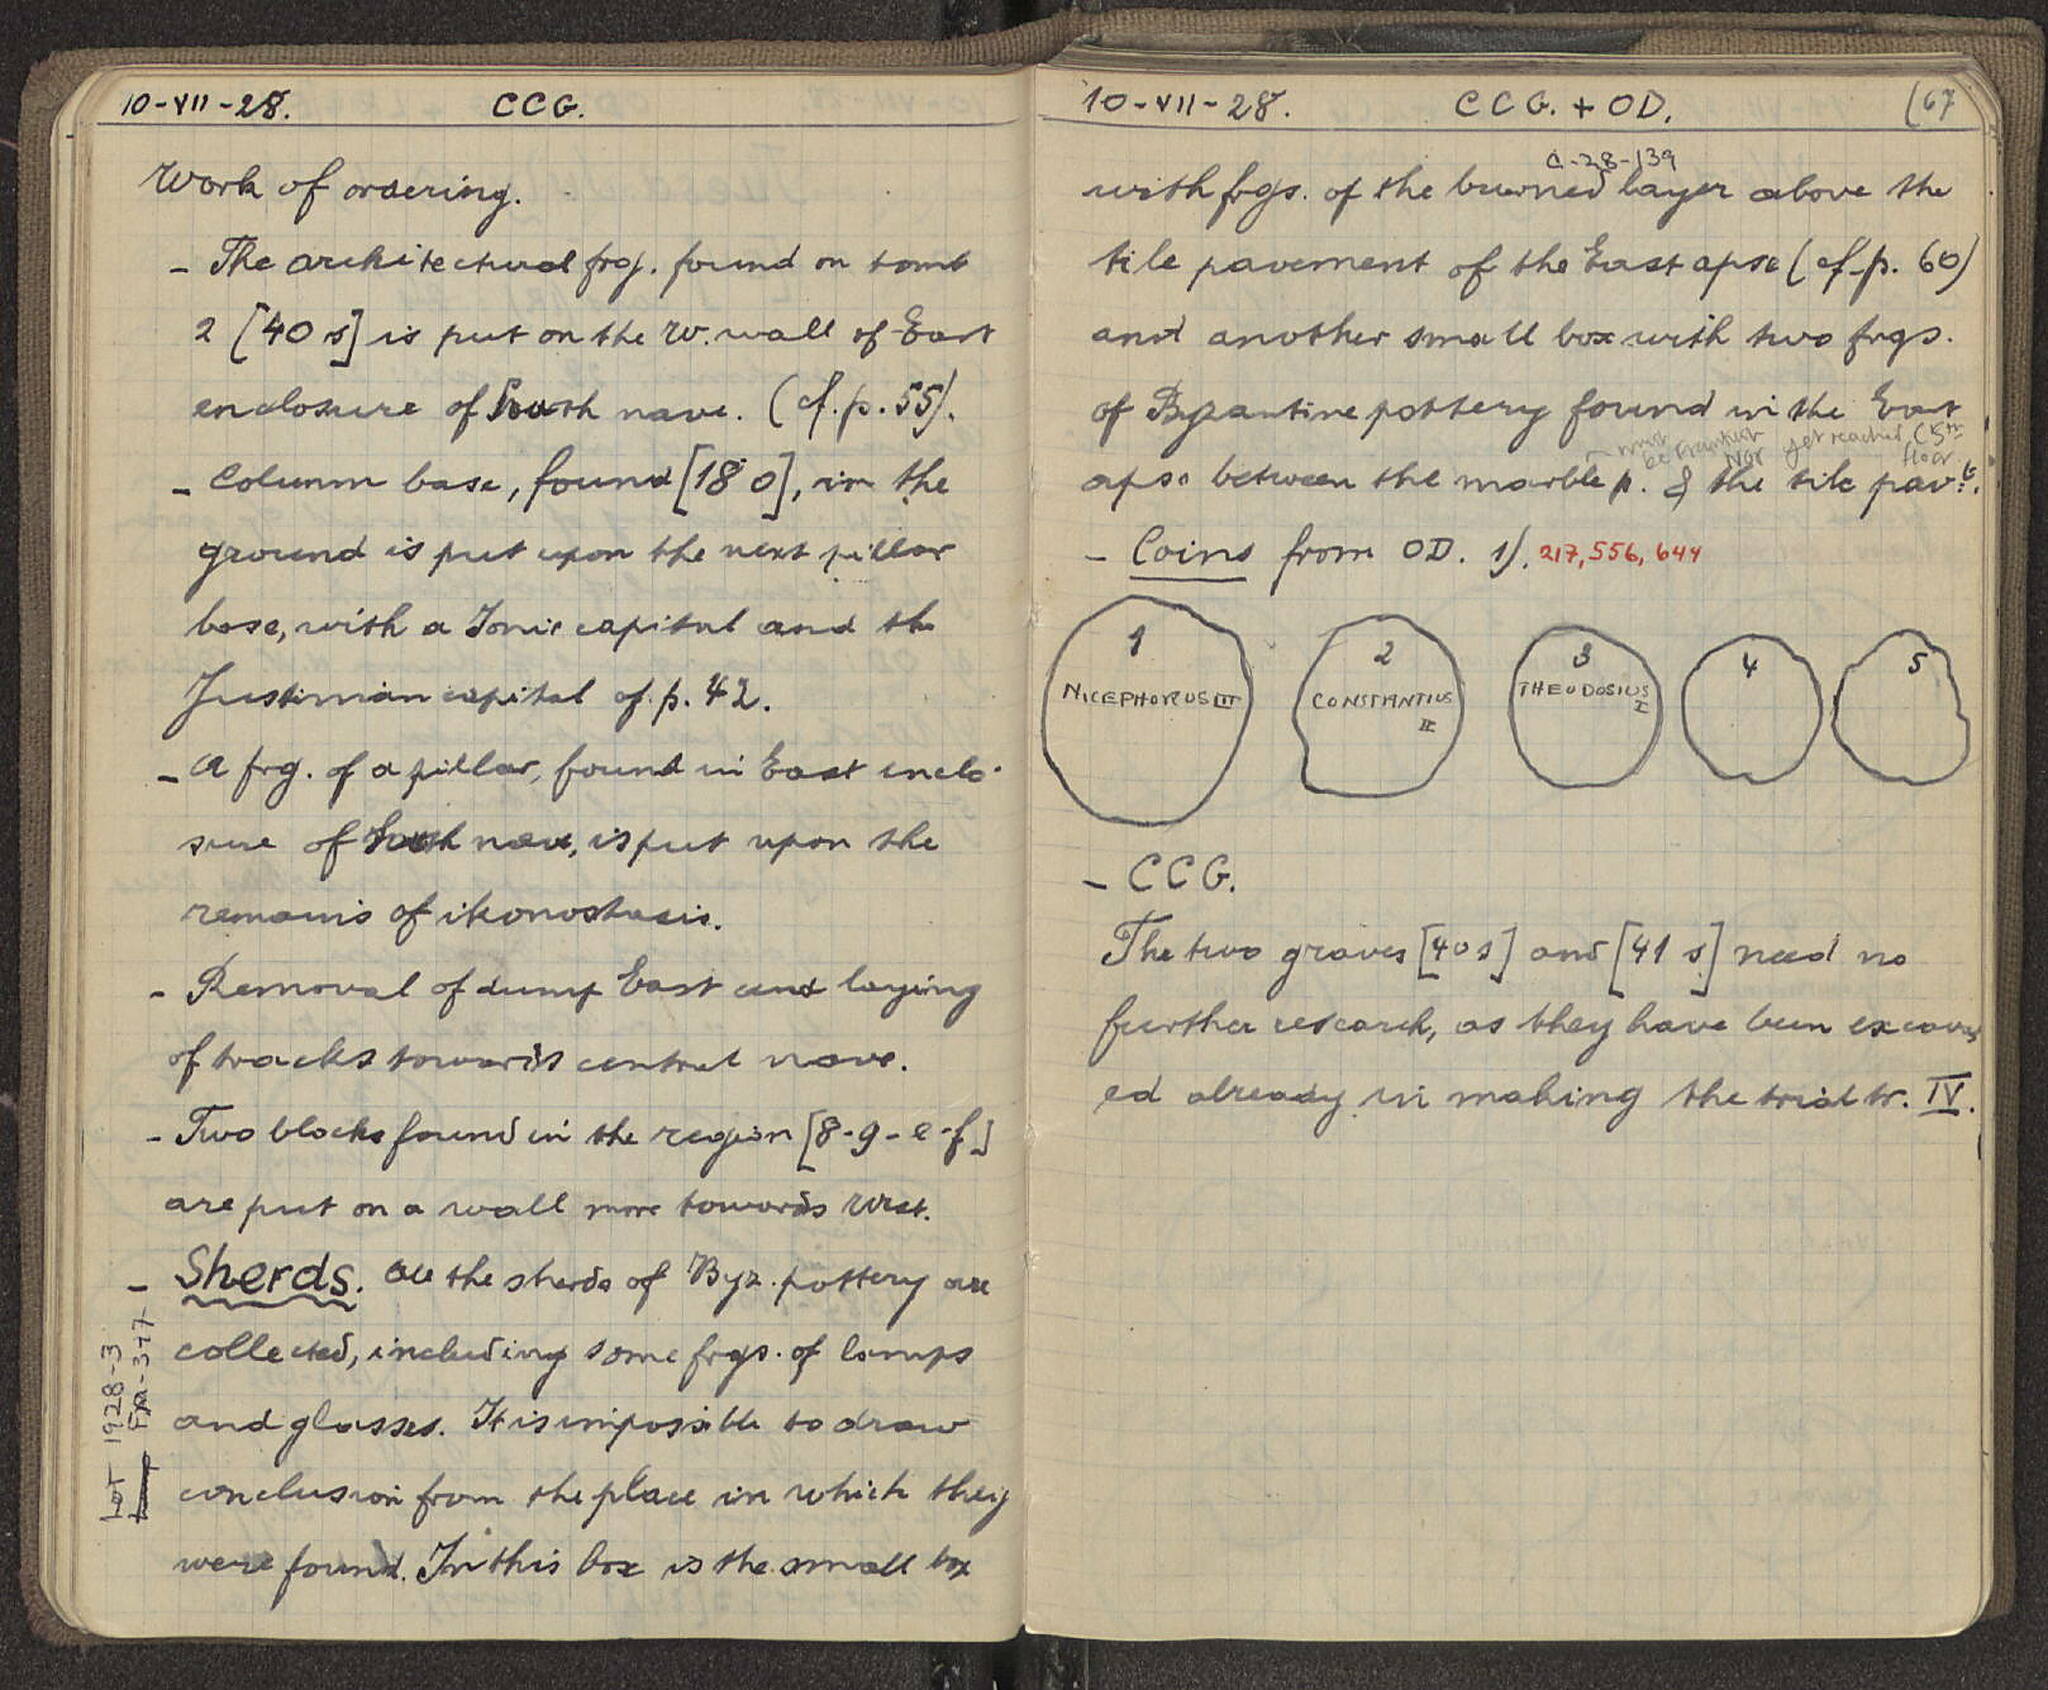 10-VII-28. CCG.
Work of ordering.
- The architectural frg. found on tomb
2 [40 s] is put on the W. wall of East
enclosure of South nave. (cf. p. 55).
- Column base, found [18 o], in the
ground is put upon the next pillar
base, with a Ionic capital and the
Justinian capital cf. p. 42.
- A frg. of a pillar, found in East enclo-
sure of South nave, is put upon the
remains of ikonostasis.
- Removal of dump East and laying
of tracks towards central nave.
- Two blocks found in the region [8-9-e-f]
are put on a wall more towards West.
- Sherds. All the sherds of Byz. pottery are
collected, including some frgs. of lamps
and glasses. It is impossible to draw
conclusion from the place in which they
were found. In this box is the small box
LOT 1928-3
10-VII-28. CCG. + OD. (67
C-28-139
with frgs. of the burned layer above the
tile pavement of the East apse (cf. p. 60)
and another small box with two frgs.
of Byzantine pottery found in the East
must be Frankish Nor yet reached C 5th floor
apse between the marble p. & the tile pavt.
- Coins from OD. 1). 217, 556, 644
1 NICEPHORUS III
2 CONSTANTIUS II
3 THEODOSIUS I
4
5
- CCG.
The two graves [40 s] and [41 s] need no
further research, as they have been excavat
ed already in making the trial tr. IV.